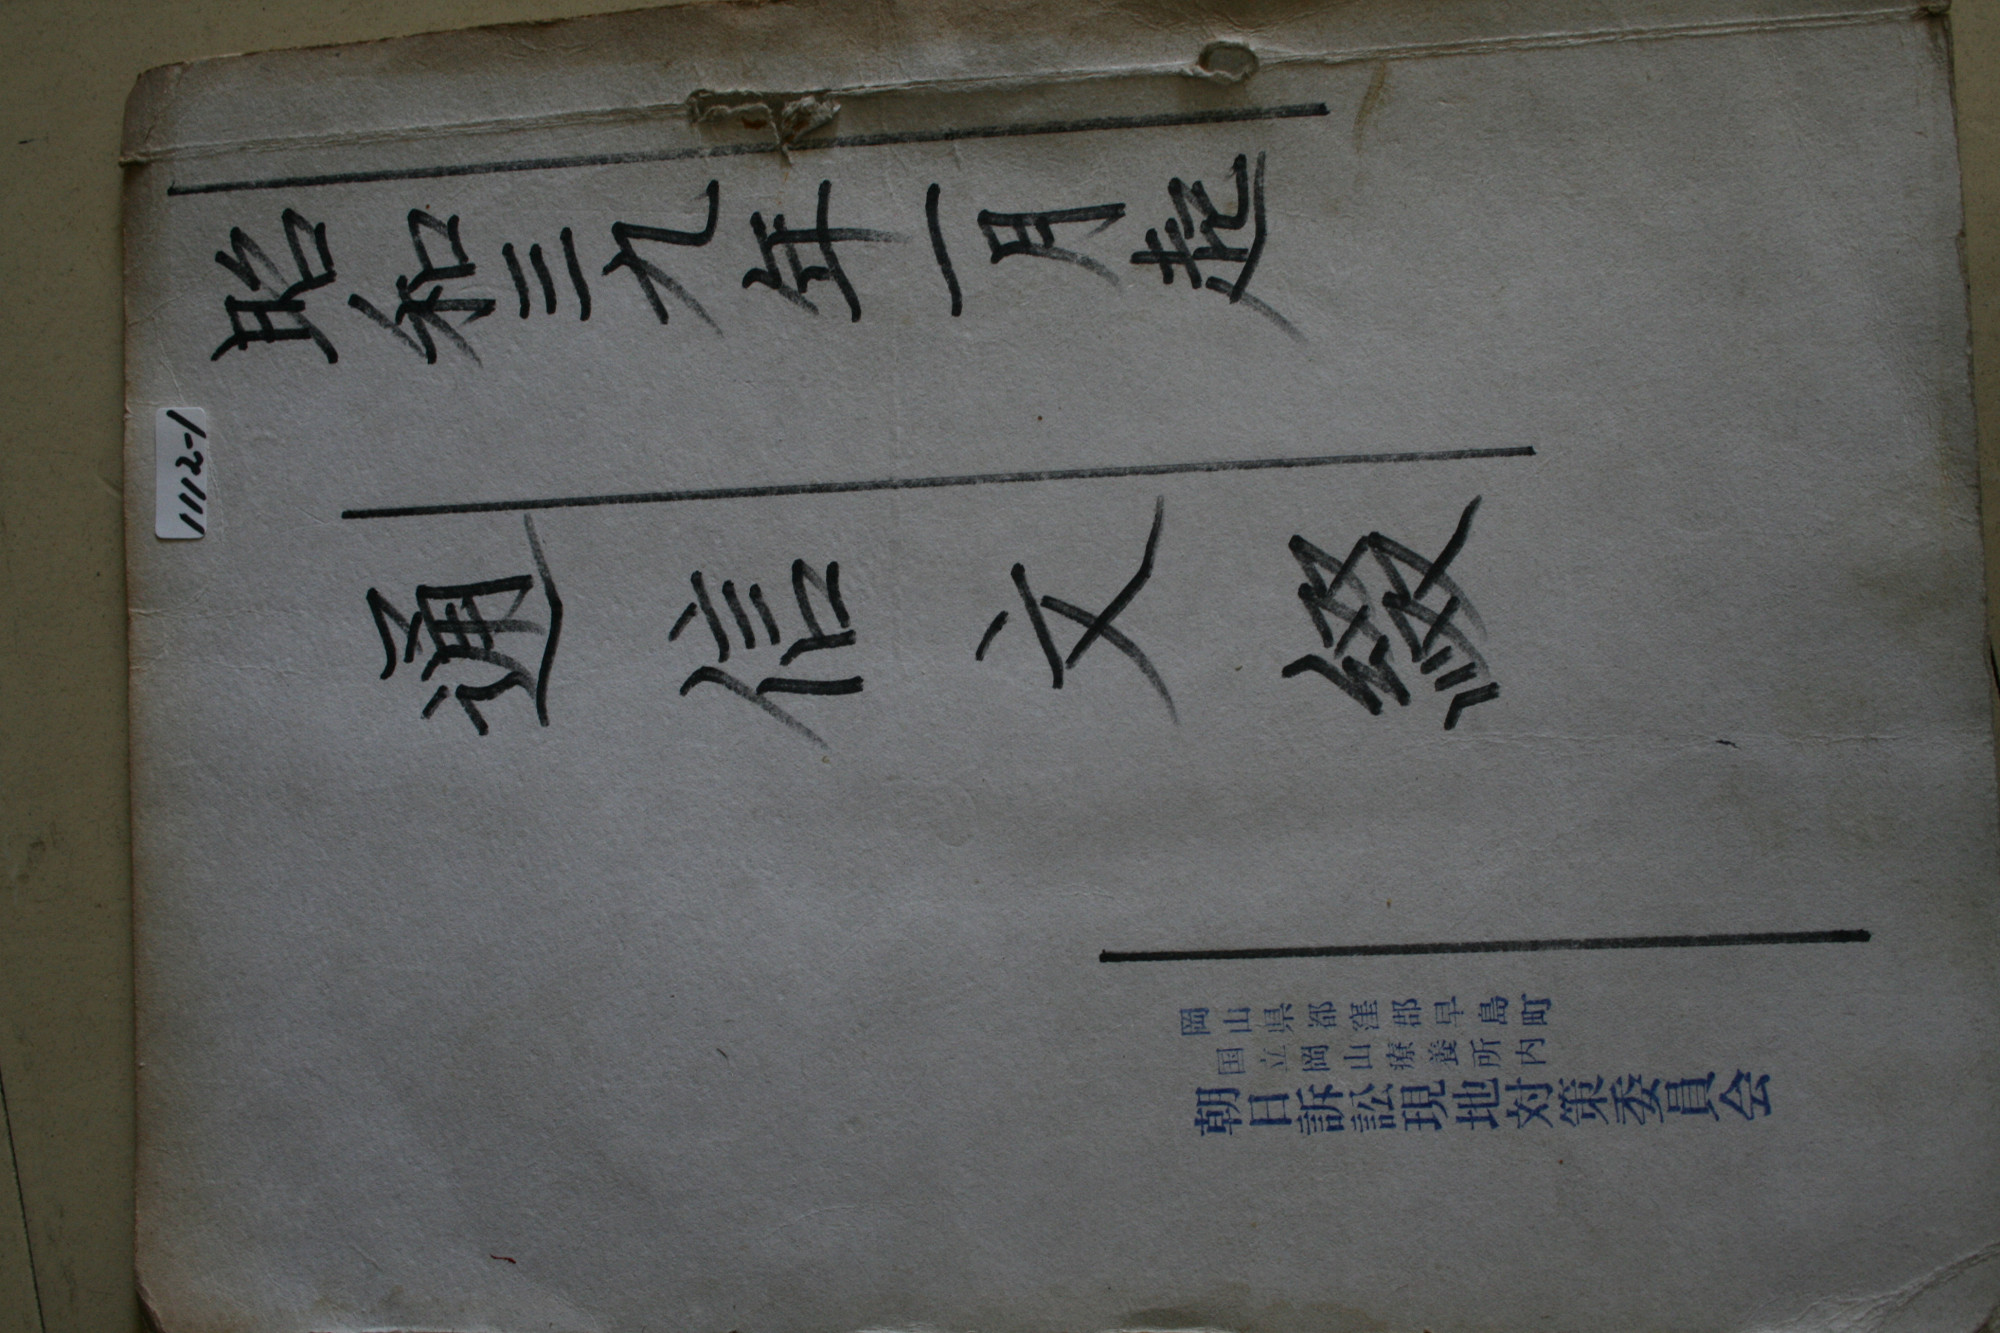 昭和三九年一月起
通信文綴
岡山県都窪郡早島町
国立岡山療養所内
朝日訴訟現地対策委員会
1112-1